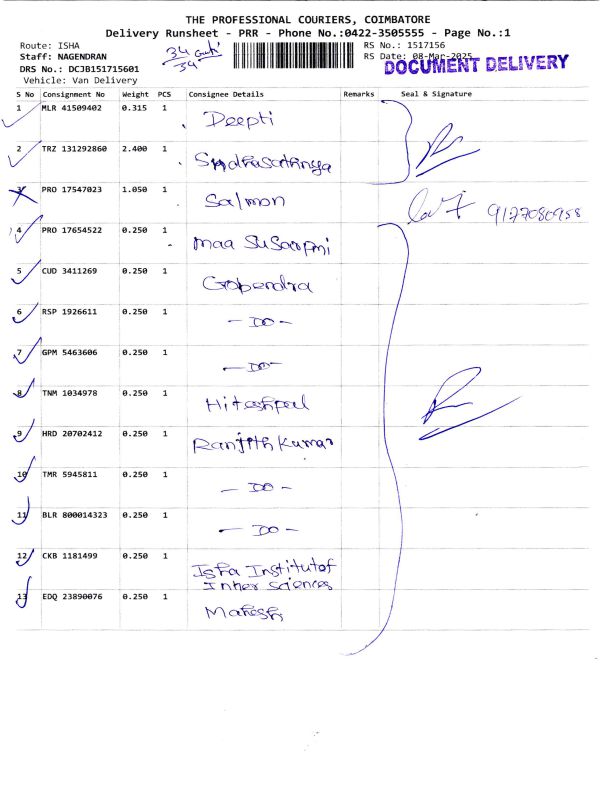 THE PROFESSIONAL COURIERS, COIMBATORE
Delivery Runsheet - PRR - Phone No.:0422-3505555 - Page No.:1
Route: ISHA
Staff: NAGENDRAN
DRS No.: DCJB151715601
Vehicle: Van Delivery
34
34
RS No.: 1517156
RS Date: 08-Mar-2025
DOCUMENT DELIVERY
S No Consignment No Weight PCS Consignee Details Remarks Seal & Signature
1 MLR 41509402 0.315 1 Deepti
2 TRZ 131292860 2.400 1
3 PRO 17547023 1.050 1 Salmon
4 PRO 17654522 0.250 1 maa
5 CUD 3411269 0.250 1 Gopendra
6 RSP 1926611 0.250 1 - DO -
7 GPM 5463606 0.250 1 - DO -
8 TNM 1034978 0.250 1
9 HRD 20702412 0.250 1 Ranjith Kumar
10 TMR 5945811 0.250 1 - DO -
11 BLR 800014323 0.250 1 - DO -
12 CKB 1181499 0.250 1 Isha Institutof
Inner Sciences
13 EDQ 23890076 0.250 1 Mahesh